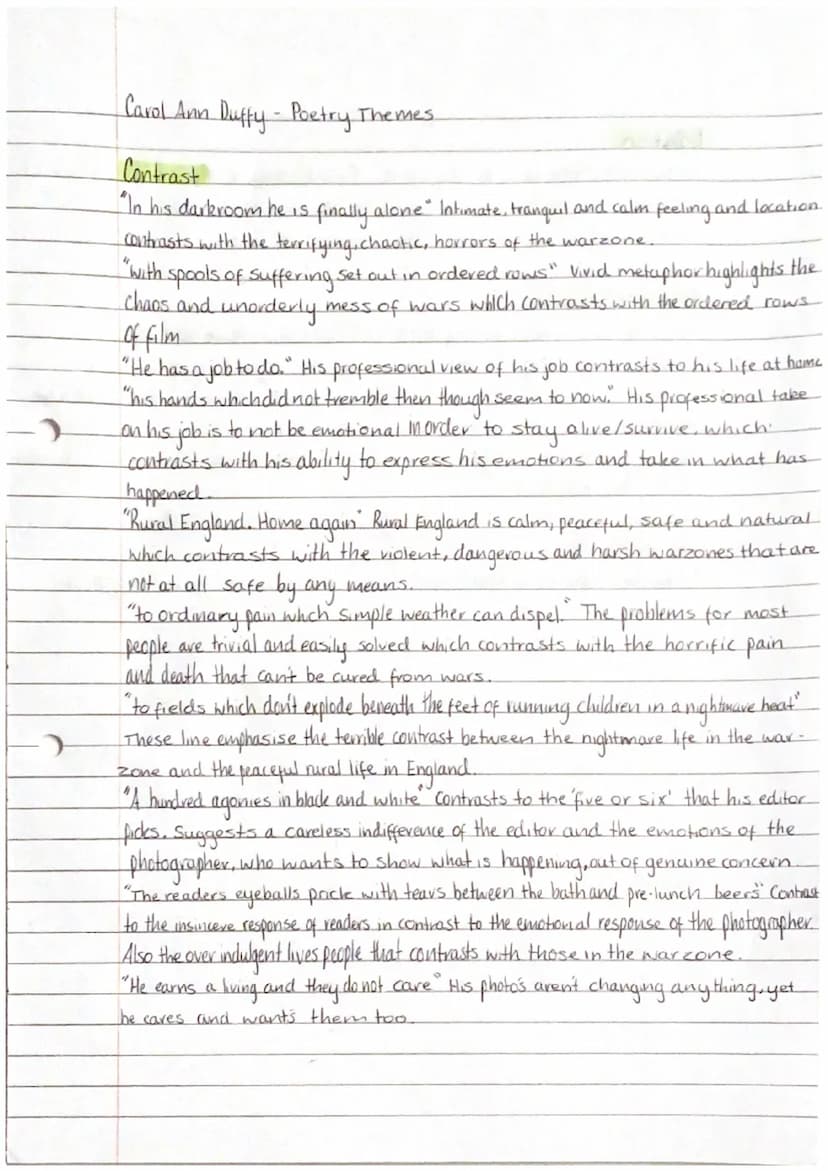 Carol Ann Duffy - Poetry Themes
Contrast
"In his darkroom he is finally alone" Intimate, tranquil and calm feeling and location
contrasts with the terrifying, chaotic, horrors of the warzone.
"with spools of suffering set out in ordered rows" Vivid metaphor highlights the
chaos and unorderly mess of wars which contrasts with the ordered rows
of film
"He has a job to do." His professional view of his job contrasts to his life at home
"his hands which did not tremble then though seem to now." His professional take
on his job is to not be emotional in order to stay alive/survive, which
contrasts with his ability to express his emotions and take in what has
happened.
"Rural England. Home again" Rural England is calm, peaceful, safe and natural
which contrasts with the violent, dangerous and harsh warzones that are
not at all safe by any means.
"to ordinary pain whch simple weather can dispel." The problems for most
people are trivial and easily solved which contrasts with the horrific pain
and death that can't be cured from wars.
"to fields which don't explode beneath the feet of running children in a nightmare heat"
These line emphasise the terrible contrast between the nightmare life in the war-
zone and the peaceful rural life in England.
"A hundred agonies in black and white" Contrasts to the 'five or six' that his editor
picks. Suggests a careless indifference of the editor and the emotions of the
photographer, who wants to show what is happening, out of genuine concern
"The readers eyeballs prick with tears between the bath and pre-lunch beers" Contrast
to the insincere response of readers in contrast to the emotional response of the photographer.
Also the over indulgent lives people that contrasts with those in the warzone.
"He earns a living and they do not care" His photo's aren't changing anything, yet
he cares and wants them too.